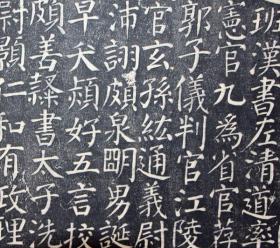 班漢書左清道
憲官九為省官荐
郭子儀判官江陵
官玄孫紘通義尉
沛詡頗泉明男誕
早夭熲好五言校
頗善隸書太子洗
尉顥仁和有政理